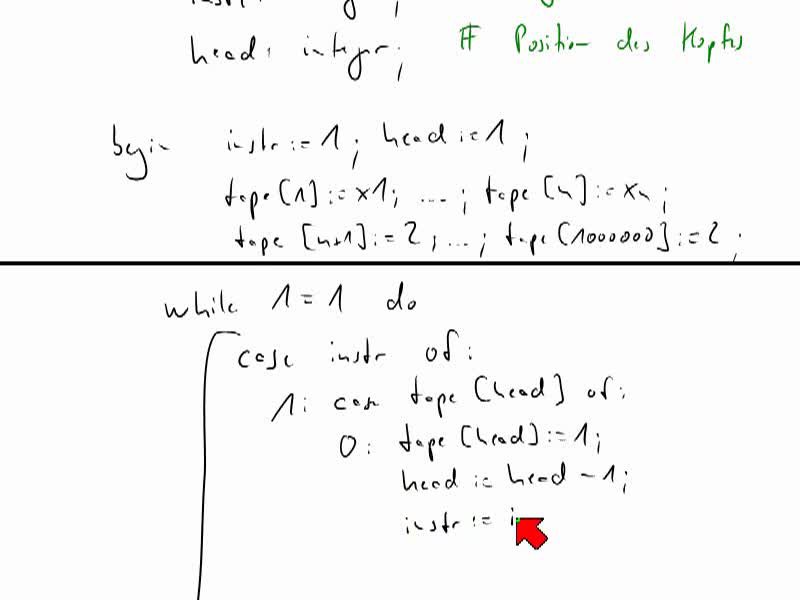 head: integer; # Position des Kopfes
begin instr := 1; head := 1;
tape [1] := x1; ...; tape [n] := xn;
tape [n+1] := 2; ...; tape [1000000] := 2;
while 1 = 1 do
case instr of:
1: case tape [head] of:
0: tape [head] := 1;
head := head - 1;
instr := i